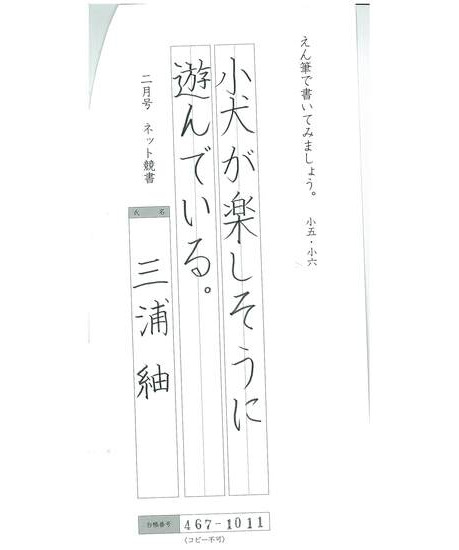 えん筆で書いてみましょう。 小五・小六
小犬が楽しそうに
遊んでいる。
二月号 ネット競書
氏名
三浦紬
台帳番号 467-1011
(コピー不可)